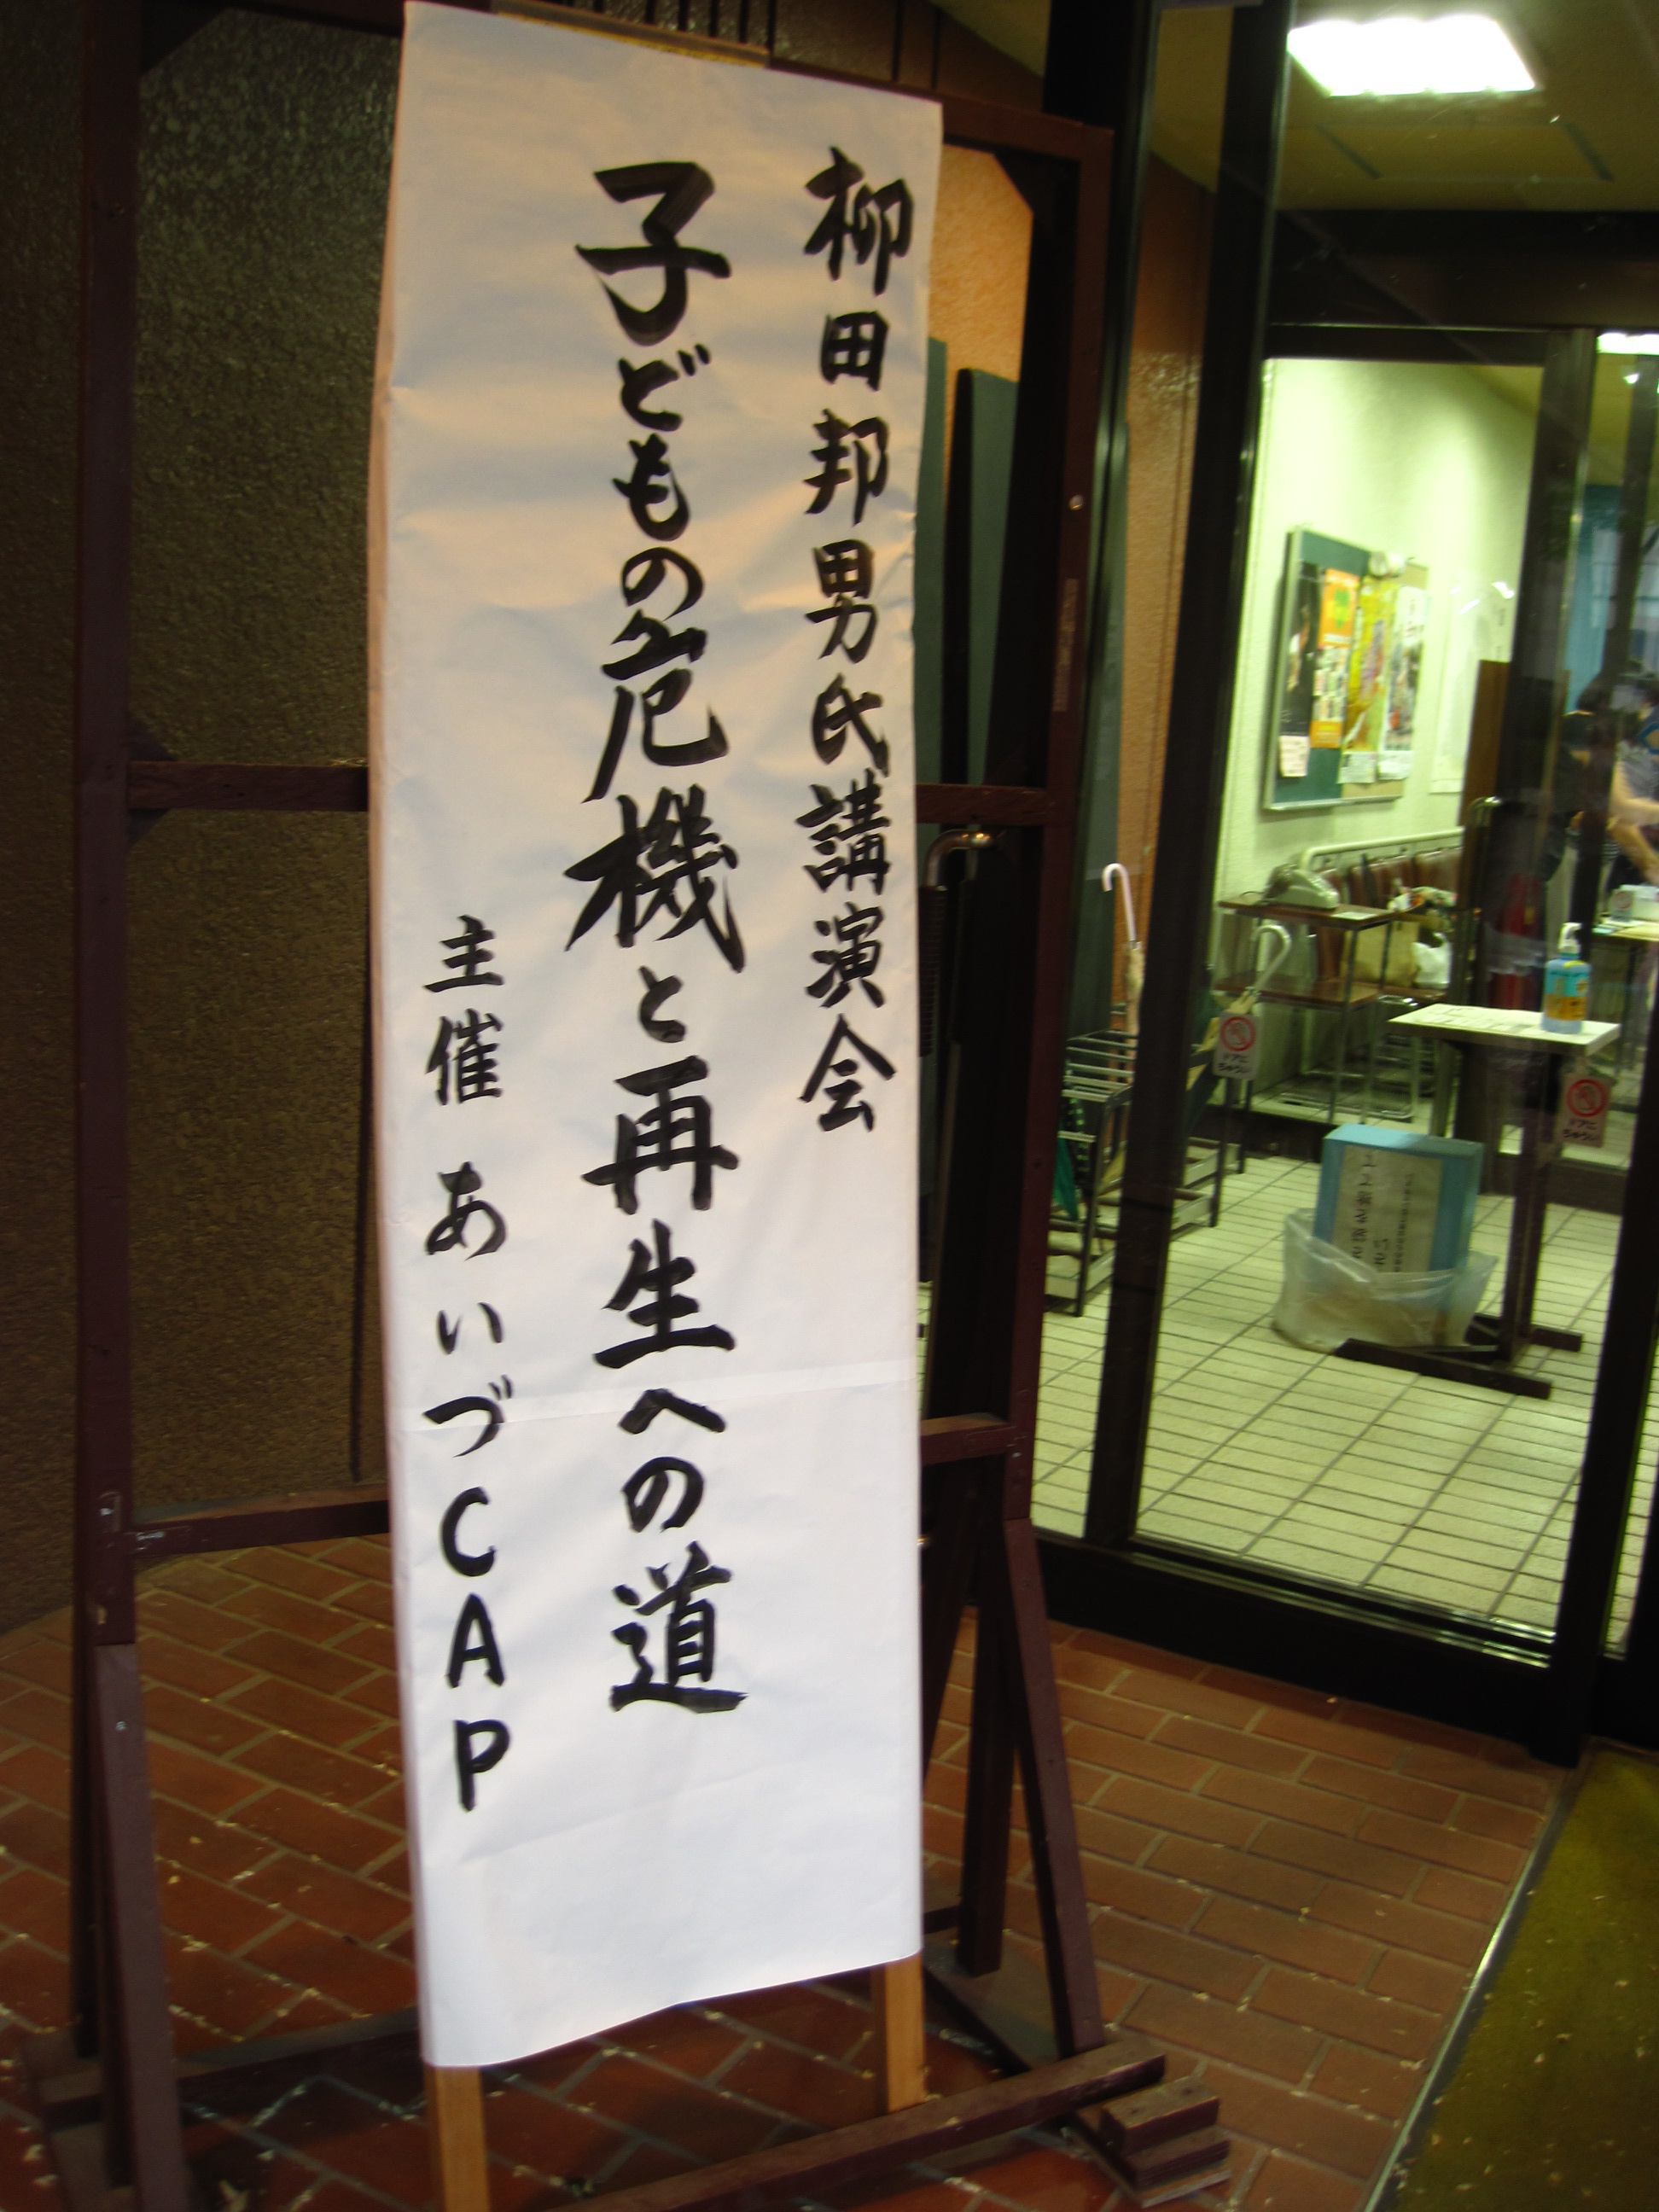 柳田邦男氏講演会
子どもの危機と再生への道
主催 あいづCAP